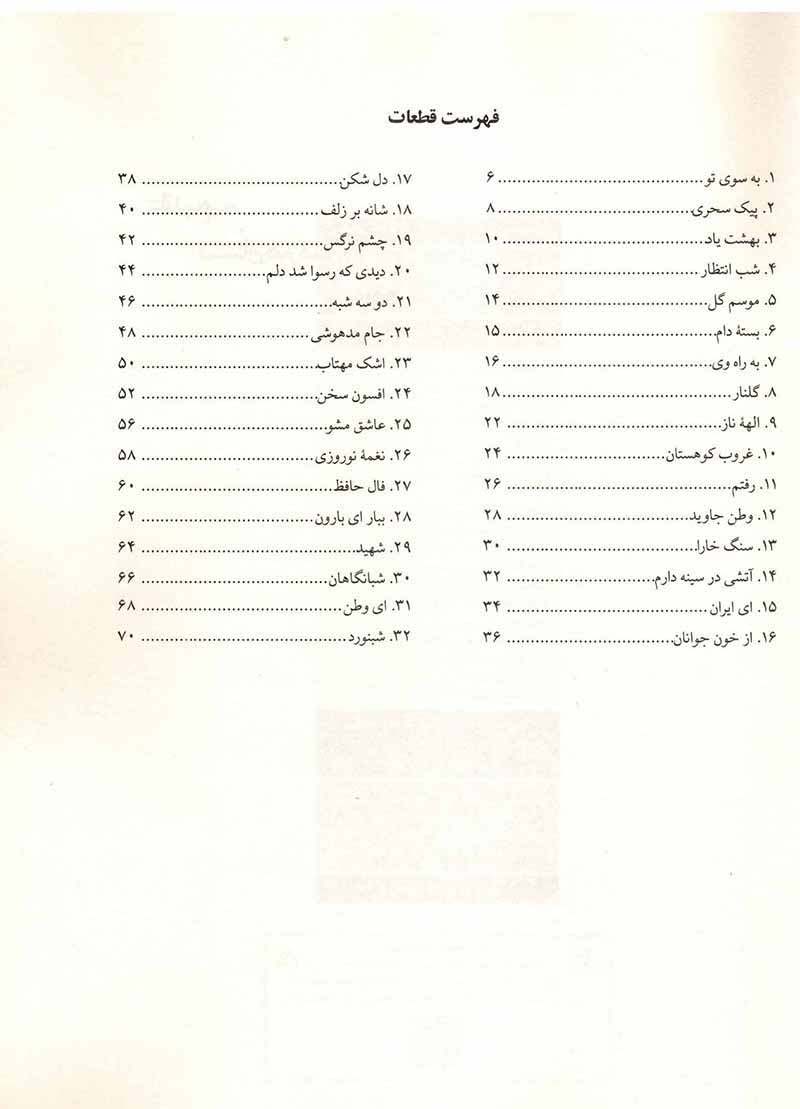 فهرست قطعات
۱. به سوی تو ........................................ ۶
۲. پیک سحری ........................................ ۸
۳. بهشت یاد ........................................ ۱۰
۴. شب انتظار ........................................ ۱۲
۵. موسم گل ........................................ ۱۴
۶. بستهٔ دام ........................................ ۱۵
۷. به راه وی ........................................ ۱۶
۸. گلنار ........................................ ۱۸
۹. الههٔ ناز ........................................ ۲۲
۱۰. غروب کوهستان ........................................ ۲۴
۱۱. رفتم ........................................ ۲۶
۱۲. وطن جاوید ........................................ ۲۸
۱۳. سنگ خارا ........................................ ۳۰
۱۴. آتشی در سینه دارم ........................................ ۳۲
۱۵. ای ایران ........................................ ۳۴
۱۶. از خون جوانان ........................................ ۳۶
۱۷. دل شکن ........................................ ۳۸
۱۸. شانه بر زلف ........................................ ۴۰
۱۹. چشم نرگس ........................................ ۴۲
۲۰. دیدی که رسوا شد دلم ........................................ ۴۴
۲۱. دو سه شبه ........................................ ۴۶
۲۲. جام مدهوشی ........................................ ۴۸
۲۳. اشک مهتاب ........................................ ۵۰
۲۴. افسون سخن ........................................ ۵۲
۲۵. عاشق مشو ........................................ ۵۶
۲۶. نغمهٔ نوروزی ........................................ ۵۸
۲۷. فال حافظ ........................................ ۶۰
۲۸. ببار ای بارون ........................................ ۶۲
۲۹. شهید ........................................ ۶۴
۳۰. شبانگاهان ........................................ ۶۶
۳۱. ای وطن ........................................ ۶۸
۳۲. شبنورد ........................................ ۷۰